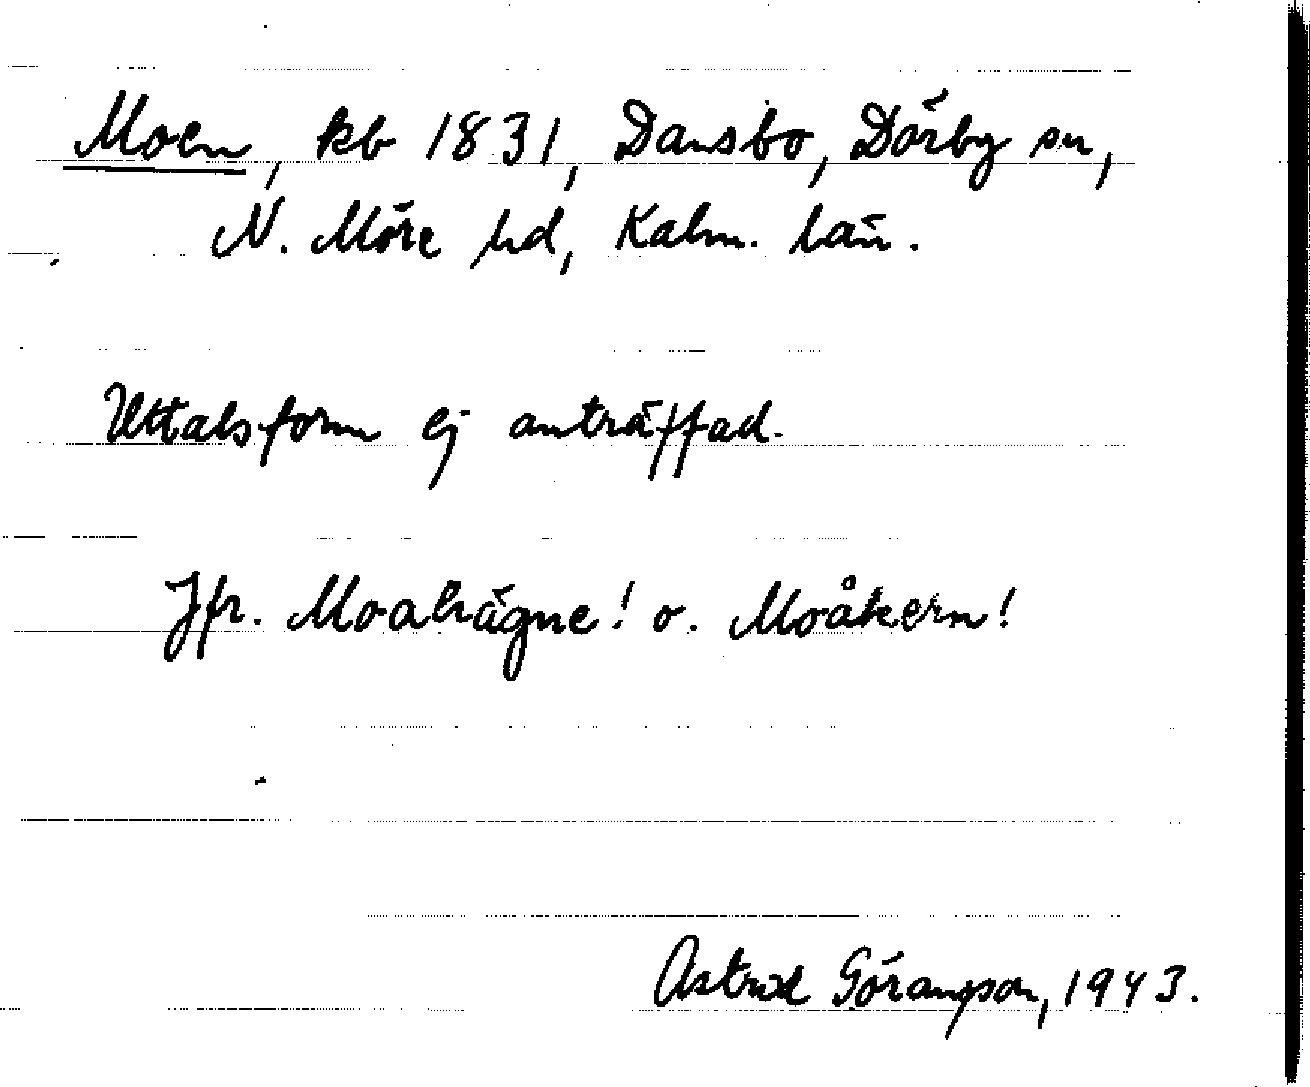 Moen, kb 1831, Dansbo, Dörby sn,
N. Möre hd, Kalm. län.
Uttalsform ej anträffad.
Jfr. Moahägne! o. Moåkern!
Astrid Göransson, 1943.